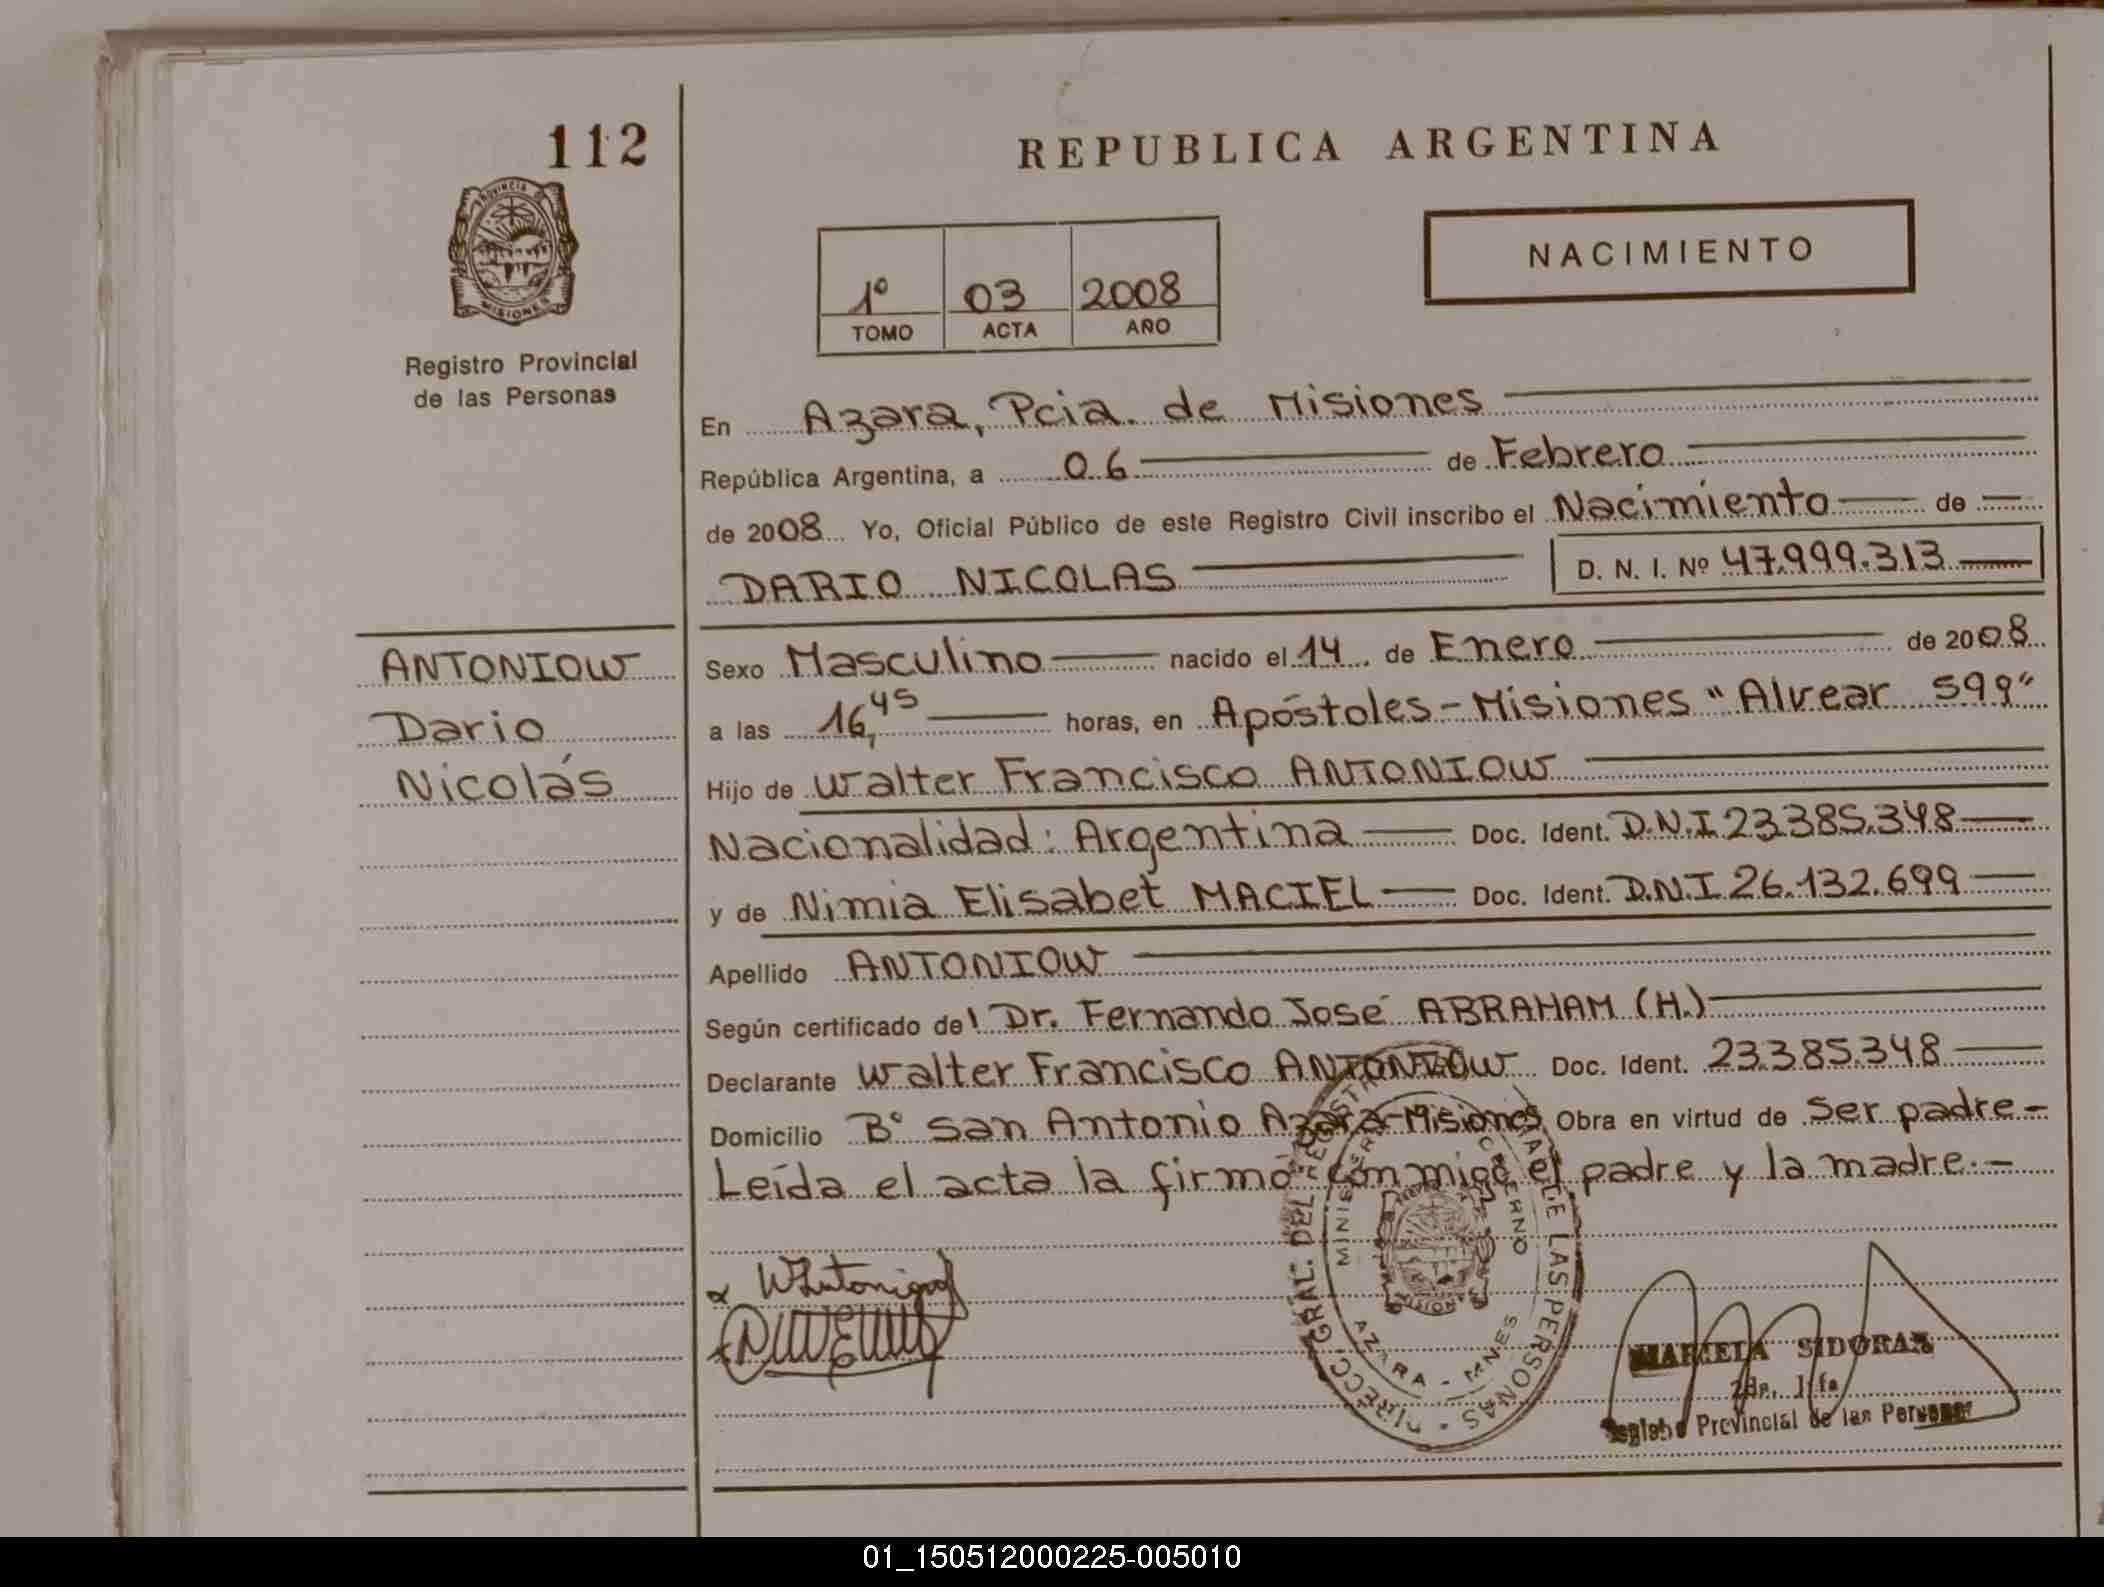 112
REPUBLICA ARGENTINA
PROVINCIA DE
MISIONES
Registro Provincial
de las Personas
1º 03 2008
TOMO ACTA AÑO
NACIMIENTO
En Azara, Pcia. de Misiones
República Argentina, a 06 de Febrero
de 2008 Yo, Oficial Público de este Registro Civil inscribo el Nacimiento de
DARIO NICOLAS D. N. I. Nº 47.999.313
ANTONIOW
Dario
Nicolás
Sexo Masculino nacido el 14 de Enero de 2008
a las 16,45 horas, en Apóstoles - Misiones "Alvear 599"
Hijo de Walter Francisco ANTONIOW
Nacionalidad: Argentina Doc. Ident. D.N.I 23.385.348
y de Nimia Elisabet MACIEL Doc. Ident. D.N.I 26.132.699
Apellido ANTONIOW
Según certificado del Dr. Fernando José ABRAHAM (H.)
Declarante Walter Francisco ANTONIOW Doc. Ident. 23.385.348
Domicilio Bº San Antonio Azara-Misiones Obra en virtud de Ser padre -
Leída el acta la firmó conmigo el padre y la madre. -
DIRECC. GRAL. DEL REGISTRO DE LAS PERSONAS
AZARA - MNES
MARIELA SIDORAK
Registro Provincial de las Personas
01_150512000225-005010